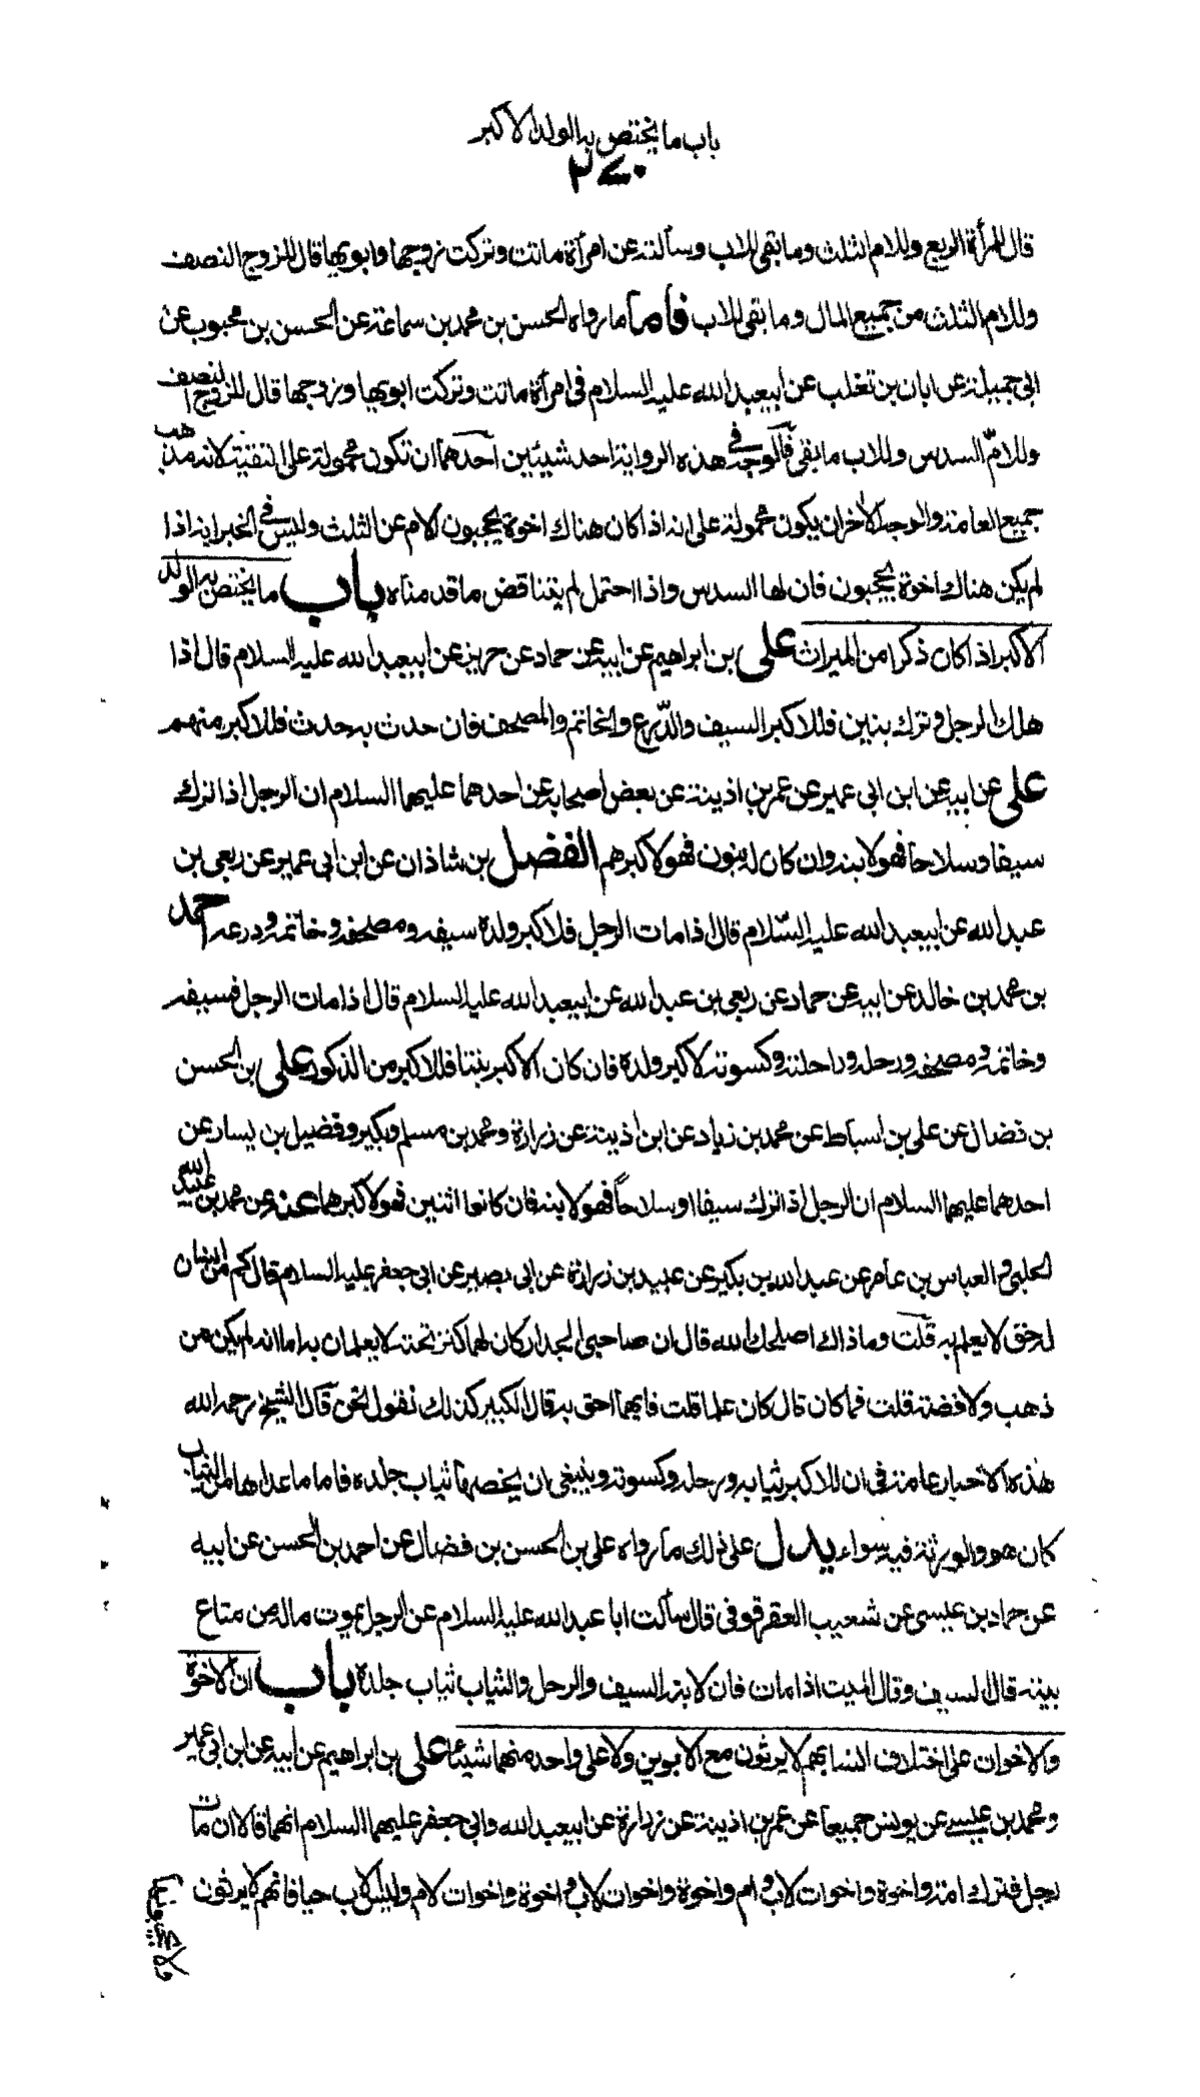 باب ما يختص به الولد الاكبر
قال للمرأة الربع وللام الثلث وما بقى للاب وسألته عن امرأة ماتت وتركت زوجها وابويها قال للزوج النصف
وللام الثلث من جميع المال وما بقى للاب فاما ما رواه الحسن بن محمد بن سماعة عن الحسن بن محبوب عن
ابى جميلة عن ابان بن تغلب عن ابيعبد الله عليه السلام فى امرأة ماتت وتركت ابويها وزوجها قال للزوج النصف
وللامّ السدس وللاب ما بقى فالوجه فى هذه الرواية احد شيئين احدهما ان تكون محمولة على التقية لانه مذهب
جميع العامة والوجه الاخران يكون محمولة على انه اذا كان هناك اخوة يحجبون الام عن الثلث وليس فى الخبر انه اذا
لم يكن هناك اخوة يحجبون فان لها السدس واذا احتمل لم يتناقض ما قدمناه باب ما يختص به الولد
الاكبر اذا كان ذكرا من الميراث على بن ابراهيم عن ابيه عن حماد عن حريز عن ابيعبد الله عليه السلام قال اذا
هلك الرجل وترك بنين فللاكبر السيف والدّرع والخاتم والمصحف فان حدث به حدث فللاكبر منهم
على عن ابيه عن ابن ابى عمير عن عمر بن اذينة عن بعض اصحابه عن احدهما عليهما السلام ان الرجل اذا ترك
سيفا وسلاحا فهو لابنه وان كان له بنون فهو لاكبرهم الفضل بن شاذان عن ابن ابى عمير عن ربعى بن
عبد الله عن ابيعبد الله عليه السّلام قال اذا مات الرجل فلاكبر ولده سيفه ومصحفه وخاتمه ودرعه احمد
بن محمد بن خالد عن ابيه عن حماد عن ربعى بن عبد الله عن ابيعبد الله عليه السلام قال اذا مات الرجل فسيفه
وخاتمه ومصحفه ورحله وراحلته وكسوته لاكبر ولده فان كان الاكبر بنتا فللاكبر من الذكور على بن الحسن
بن فضال عن على بن اسباط عن محمد بن زياد عن ابن اذينة عن زرارة ومحمد بن مسلم وبكير وفضيل بن يسار عن
احدهما عليهما السلام ان الرجل اذا ترك سيفا او سلاحاً فهو لابنه فان كانوا اثنين فهو لاكبرهما عنه عن محمد بن عبيد الله
الحلبى و العباس بن عامر عن عبد الله بن بكير عن عبيد بن زرارة عن ابى بصير عن ابى جعفر عليه السلام قال كم من انسان
له حق لا يعلم به قلت وما ذاك اصلحك الله قال ان صاحبى الجدار كان لهما كنز تحته لا يعلمان به اما انه لم يكن من
ذهب ولا فضة قلت فما كان قال كان علما قلت فايهما احق به قال الكبير كذلك نقول نحن قال الشيخ رحمه الله
هذه الاخبار عامة فى ان للاكبر ثيابه ورحله وكسوته وينبغى ان يخصها ثياب جلده فاما ما عداها من الثياب
كان هو والورثة فيه سواء يدل على ذلك ما رواه على بن الحسن بن فضال عن احمد بن الحسن عن ابيه
عن حماد بن عيسى عن شعيب العقرقوفى قال سألت ابا عبد الله عليه السلام عن الرجل يموت ماله من متاع
بيته قال السيف وقال الميت اذا مات فان لابنه السيف والرحل والثياب ثياب جلده باب ان الاخوة
والاخوات على اختلاف انسابهم لا يرثون مع الابوين ولا على واحد منهما شيئا على بن ابراهيم عن ابيه عن ابن ابى عمير
ومحمد بن عيسى عن يونس جميعا عن عمر بن اذينة عن زرارة عن ابيعبد الله وابى جعفر عليهما السلام انهما قالا ان مات
رجل فترك امه واخوة واخوات لاب وام واخوة واخوات لاب واخوة واخوات لام وليس الاب حيا فانهم لا يرثون